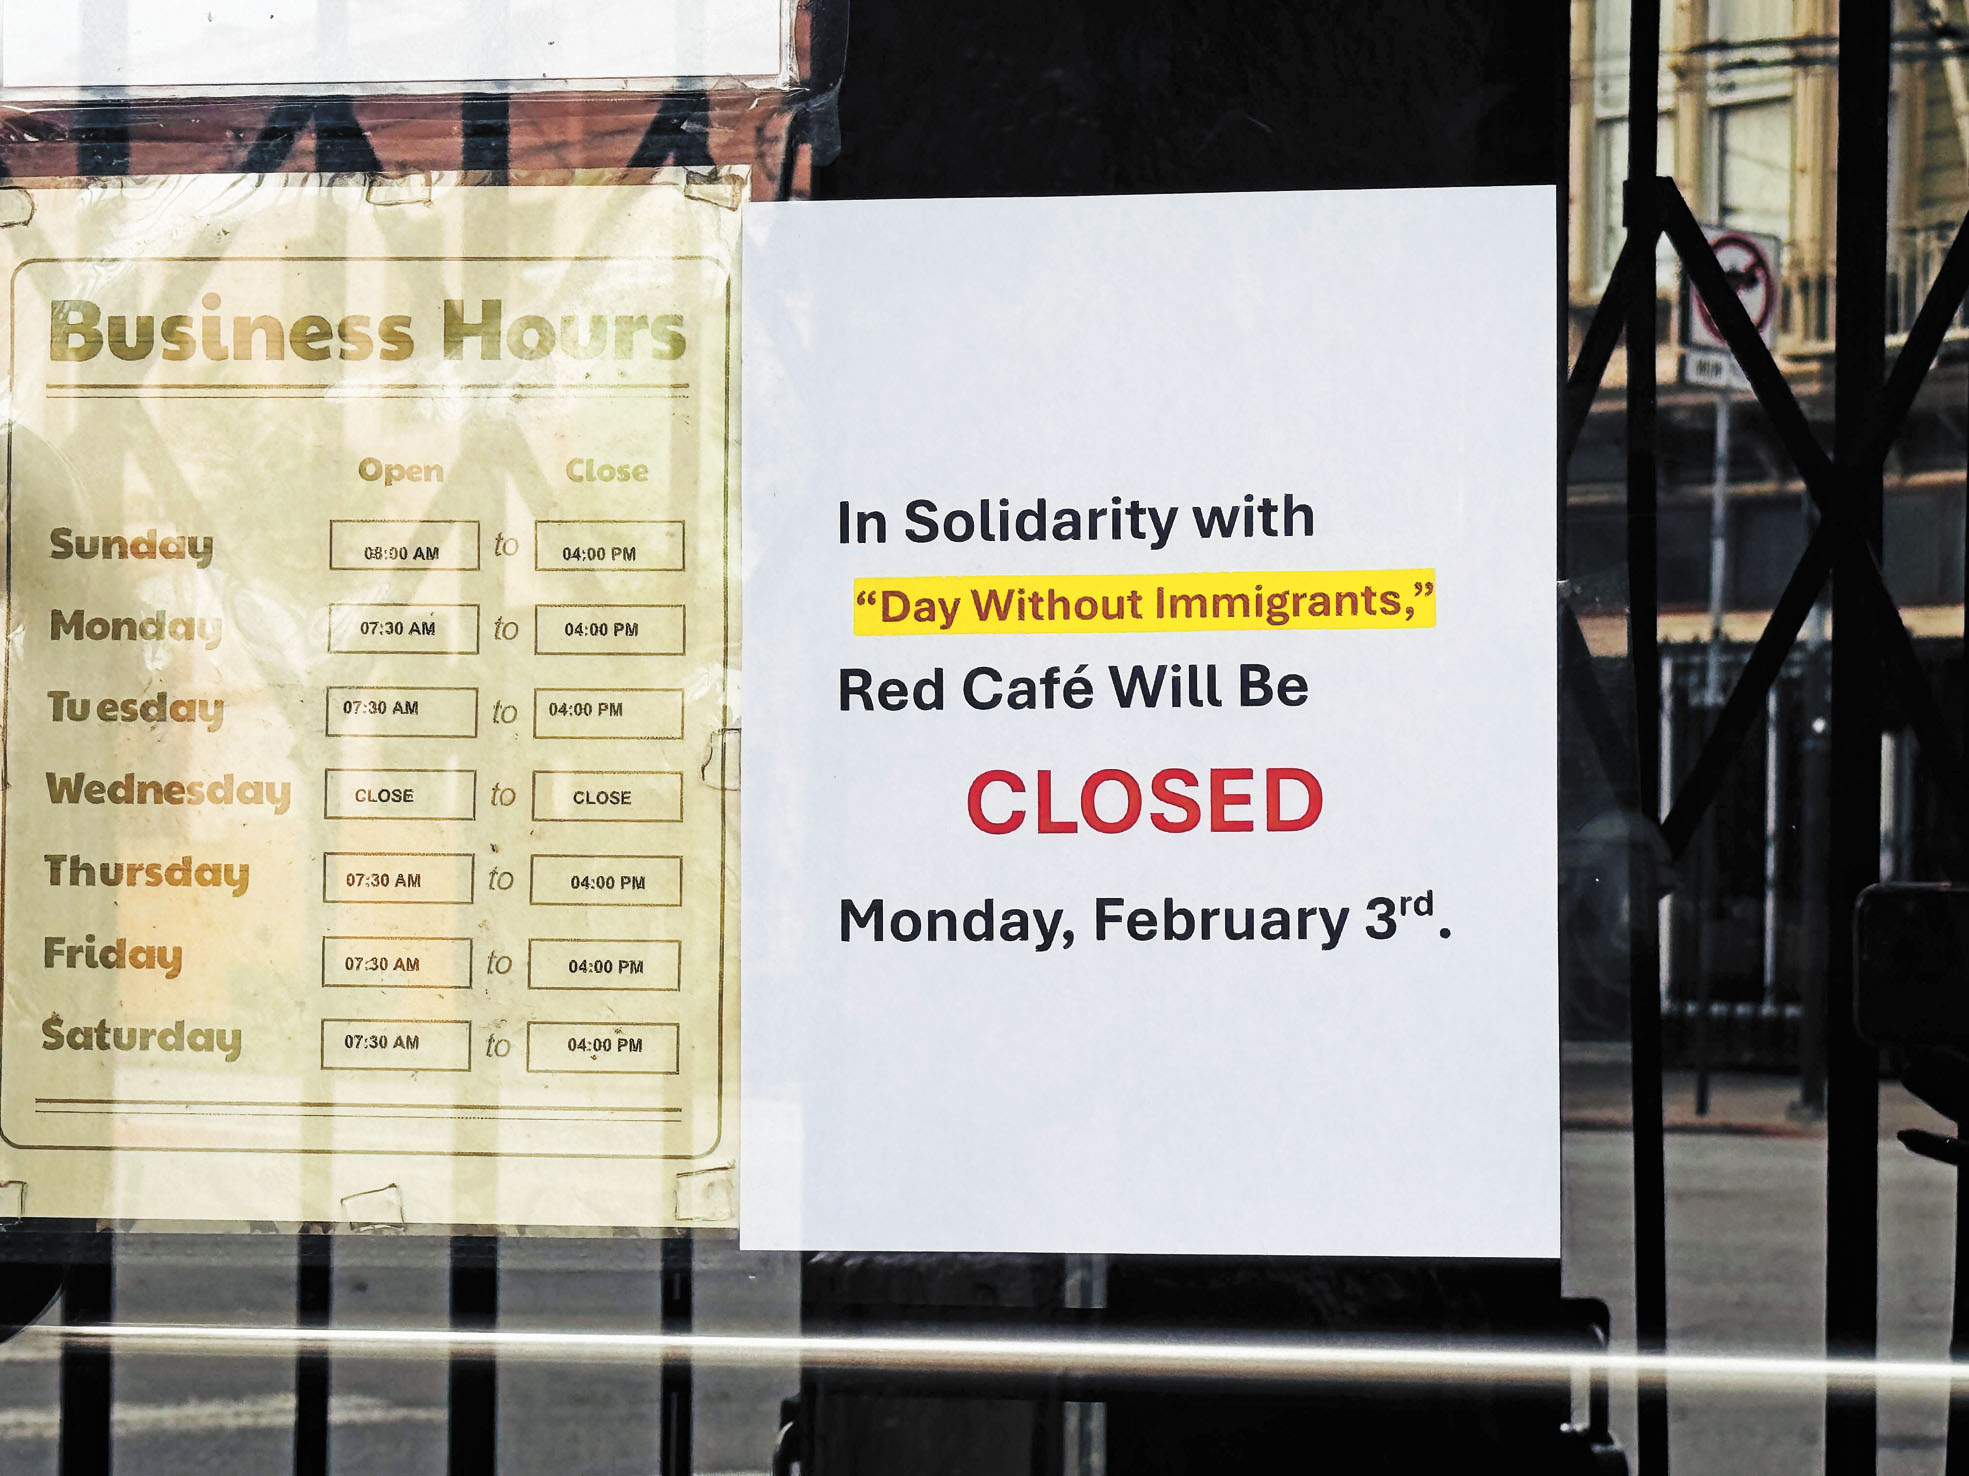 Business Hours
Open Close
Sunday 08:00 AM to 04:00 PM
Monday 07:30 AM to 04:00 PM
Tuesday 07:30 AM to 04:00 PM
Wednesday CLOSE to CLOSE
Thursday 07:30 AM to 04:00 PM
Friday 07:30 AM to 04:00 PM
Saturday 07:30 AM to 04:00 PM
In Solidarity with
“Day Without Immigrants,”
Red Café Will Be
CLOSED
Monday, February 3rd.